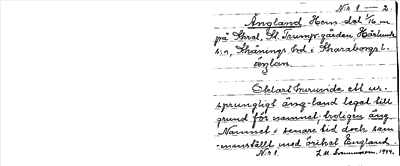 Nr 1 — 2.
Ängland Hem. det 1/16 m
på Skrol, St. Trumpegården, Härlunda
s:n, Skånings hd i Skaraborgs l.
änlan.
Oklart huruvida ett ur-
sprungligt äng-land legat till
grund för namnet, troligen äng.
Namnet i senare tid dock sam-
manställt med örikel England.
Nr 1. 1934.